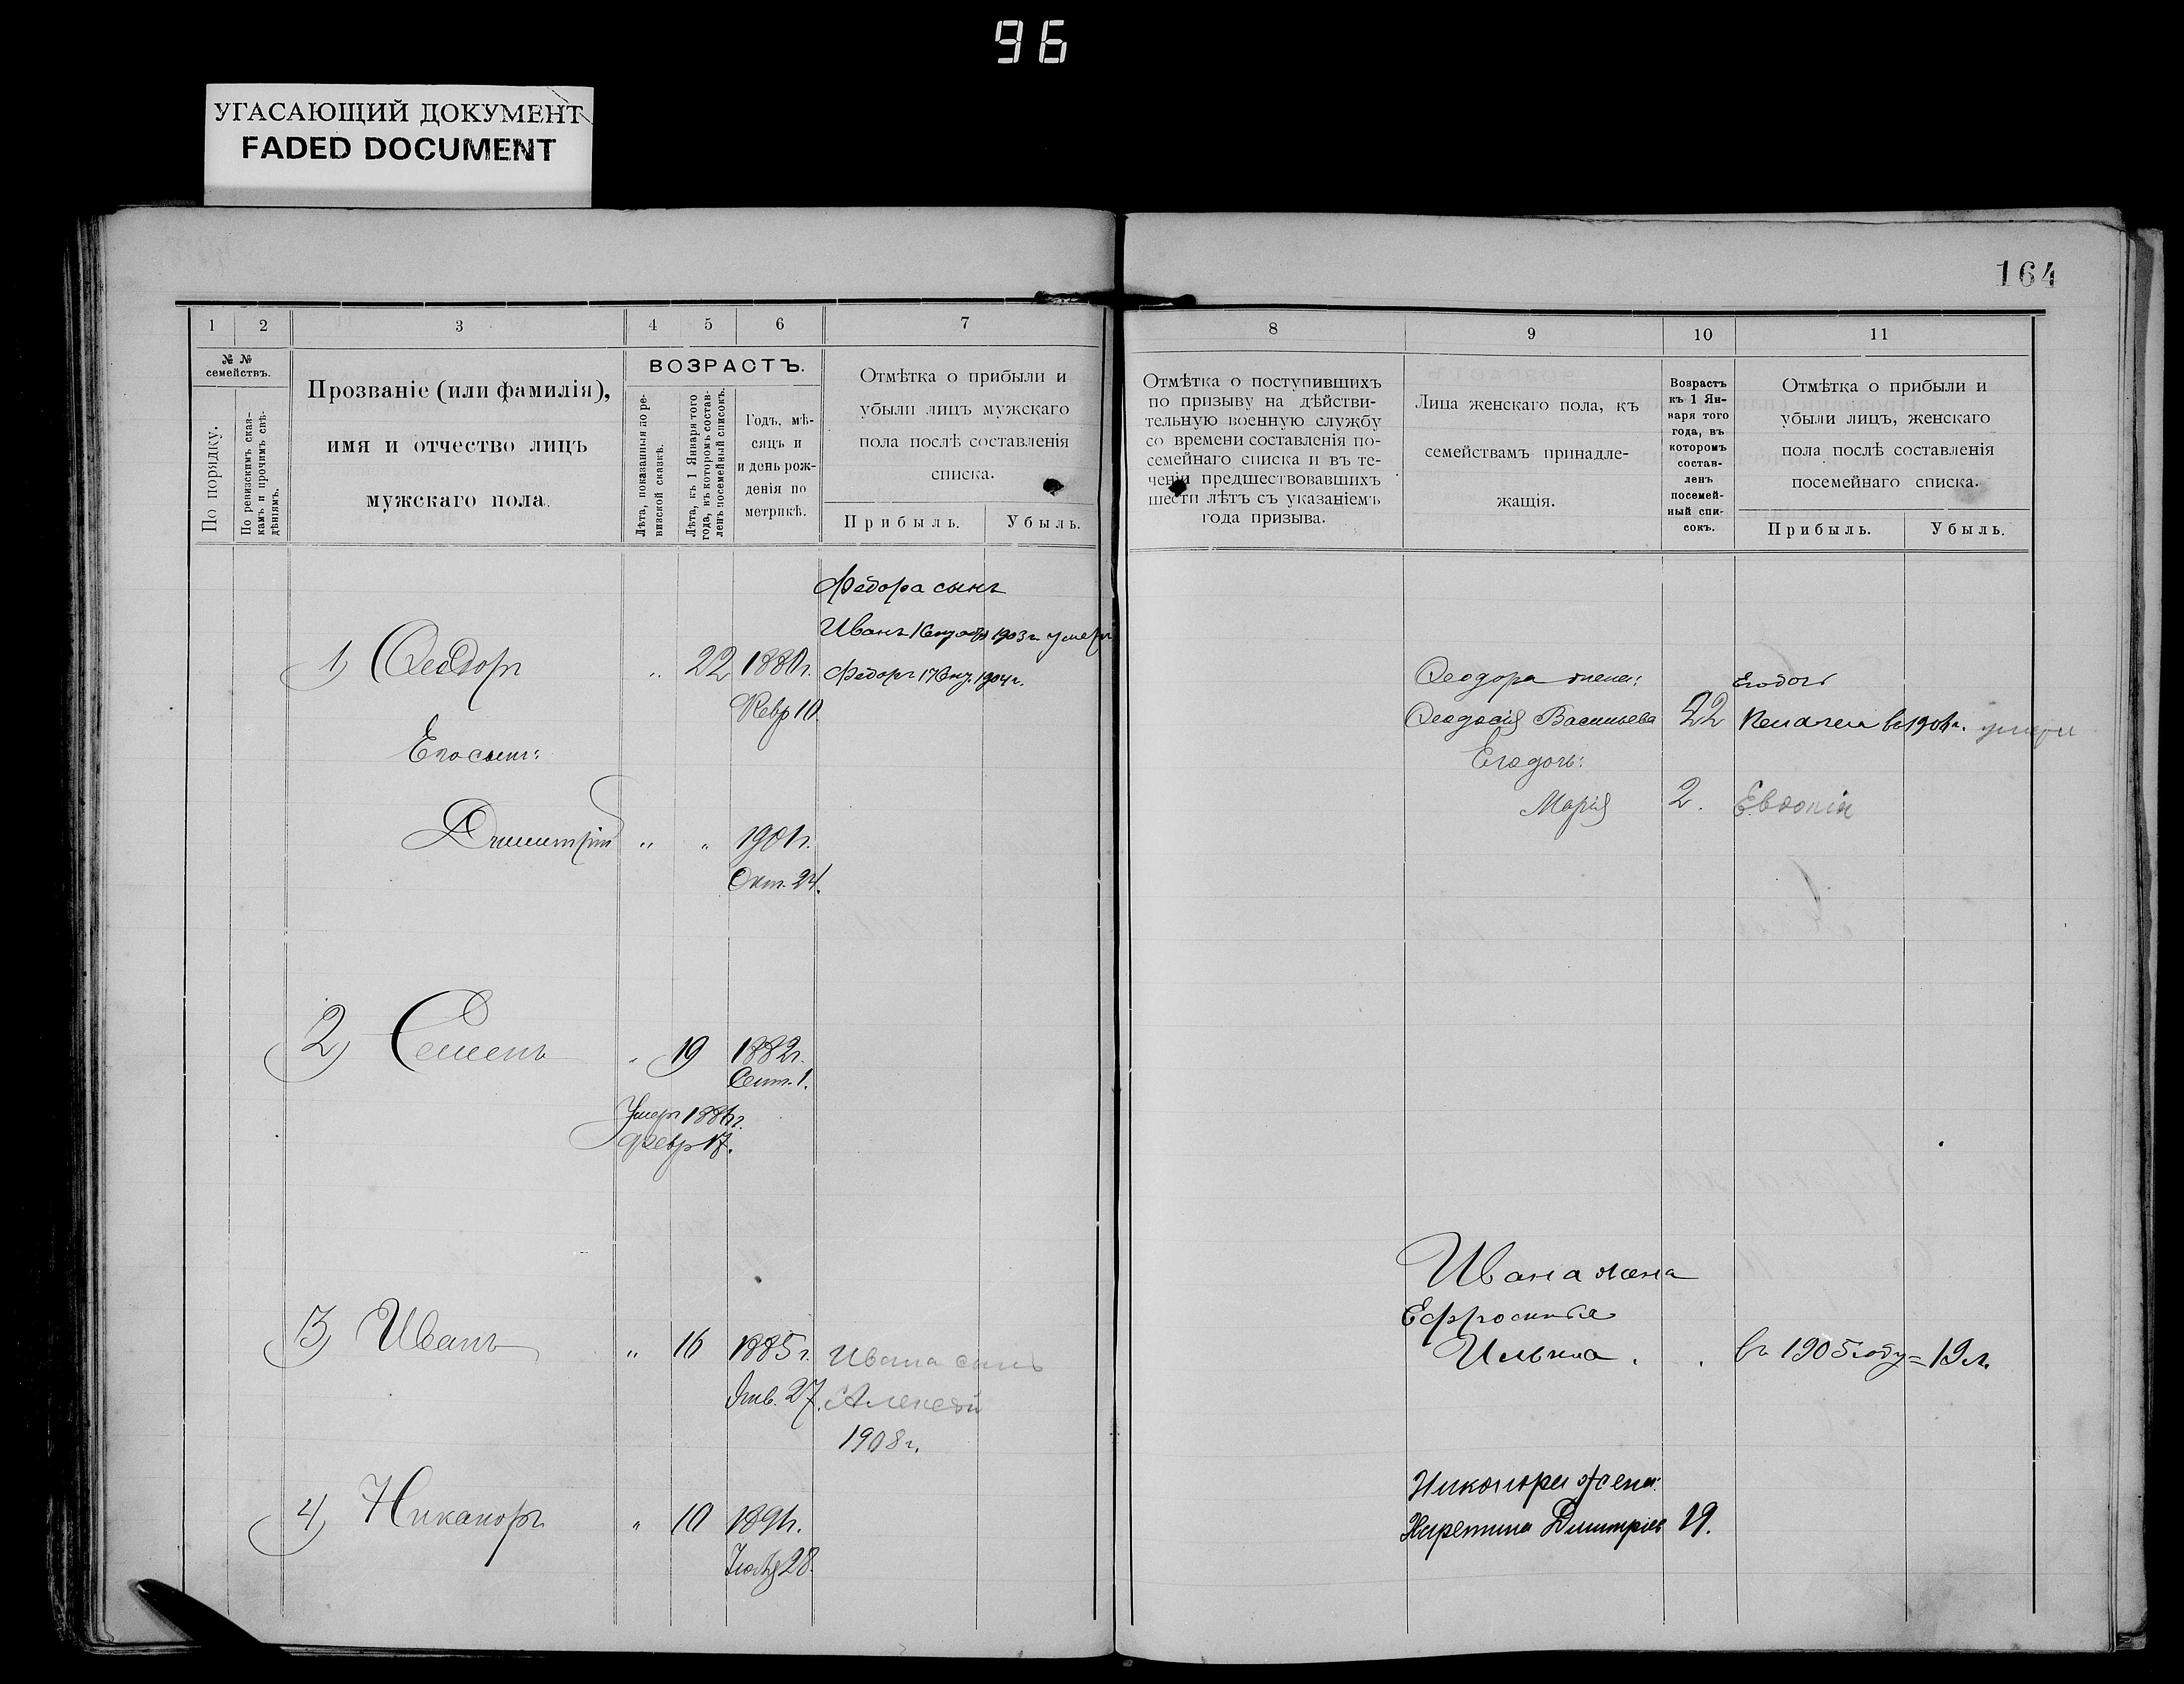 96
УГАСАЮЩИЙ ДОКУМЕНТ
FADED DOCUMENT
164
1 2 3 4 5 6 7
№ №
семействъ.
По порядку.
По ревизскимъ сказ-
камъ и прочимъ свѣ-
дѣніямъ.
Прозваніе (или фамилія),
имя и отчество лицъ
мужскаго пола.
ВОЗРАСТЪ.
Лѣта, показанныя по ре-
визской сказкѣ.
Лѣта, къ 1 Января того
года, въ которомъ состав-
ленъ посемейный списокъ.
Годъ, мѣ-
сяцъ и
и день рож-
денія по
метрикѣ.
Отмѣтка о прибыли и
убыли лицъ мужскаго
пола послѣ составленія
списка.
Прибыль. Убыль.
8 9 10 11
Отмѣтка о поступившихъ
по призыву на дѣйстви-
тельную военную службу
со времени составленія по-
семейнаго списка и въ те-
ченіи предшествовавшихъ
шести лѣтъ съ указаніемъ
года призыва.
Лица женскаго пола, къ
семействамъ принадле-
жащія.
Возрастъ
къ 1 Ян-
варя того
года, въ
которомъ
состав-
ленъ
посемей-
ный спи-
сокъ.
Отмѣтка о прибыли и
убыли лицъ, женскаго
пола послѣ составленія
посемейнаго списка.
Прибыль. Убыль.
Федора сынъ
Иванъ 1903 г. умеръ
1) Ѳеодоръ " 22 1880 г. Федоръ 17 1904 г.
Февр 10.
Его сынъ:
Димитрій " " 1901 г.
Окт. 24.
2) Семенъ " 19 1882 г.
Сент. 1.
Умеръ 1886 г.
февр 17.
3) Иванъ " 16 1885 г. Ивана сынъ
Янв. 27. Алексѣй
1908 г.
4) Никаноръ " 10 1891 г.
Іюля 28.
Ѳеодора жена: Его дочь
Ѳеодосія Васильева 22 умерла
Его дочь:
Марія 2. Евдокія
Ивана жена
Ефросинья
Ильина . . въ 1905 году = 19 л.
Никанора жена:
Димитріев 19.